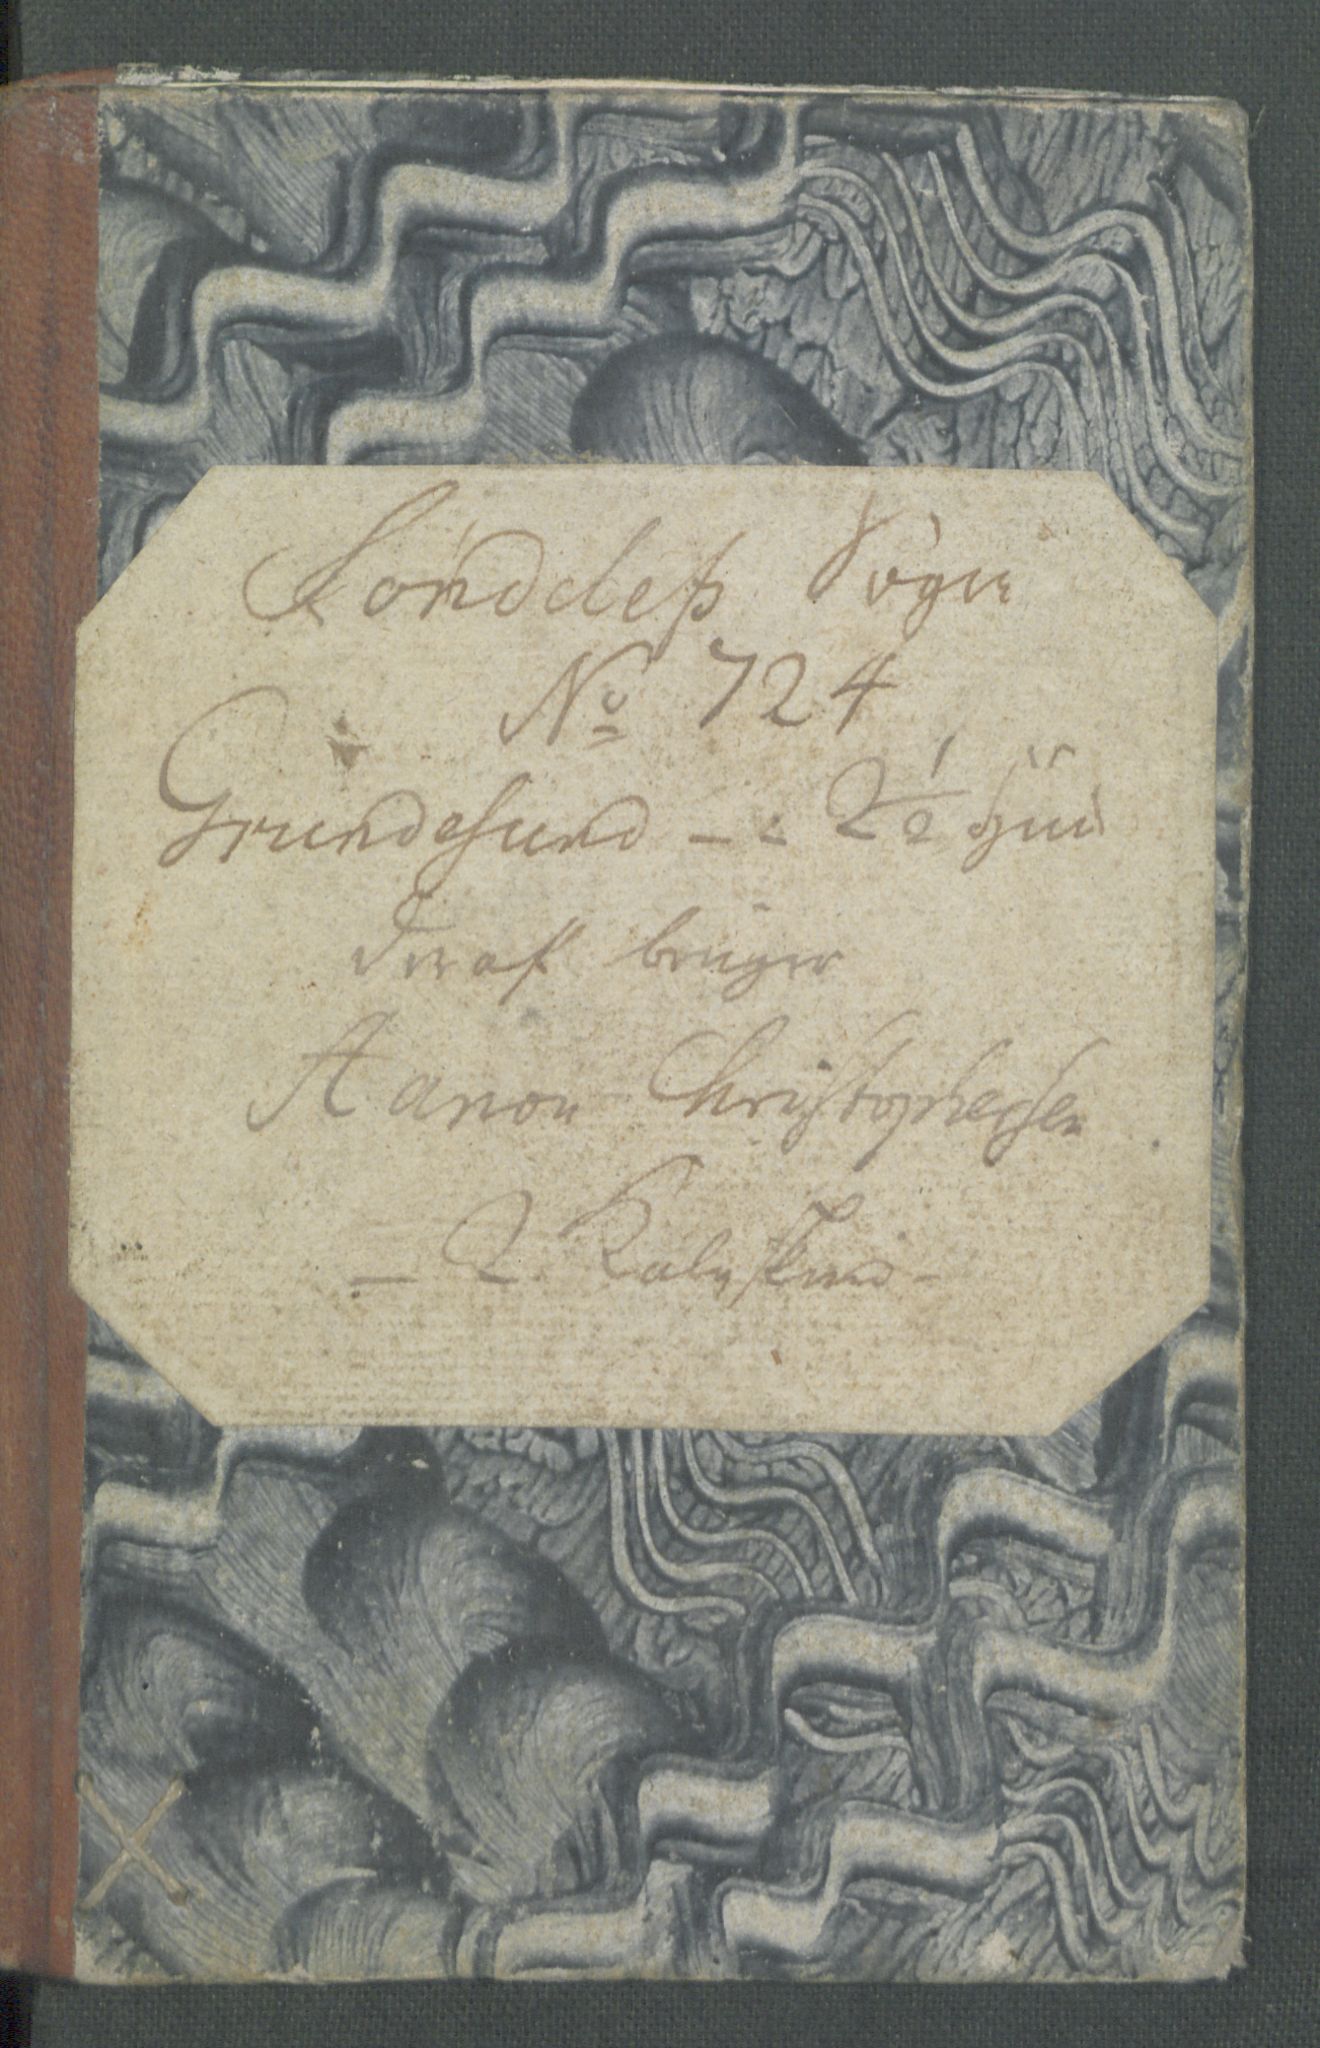 Sönddeleß Sogn
No 724
Grundesund — : 2 1/2 Hud
deraf bruger
Aanon Christophersen
— 2 Kalvskind —